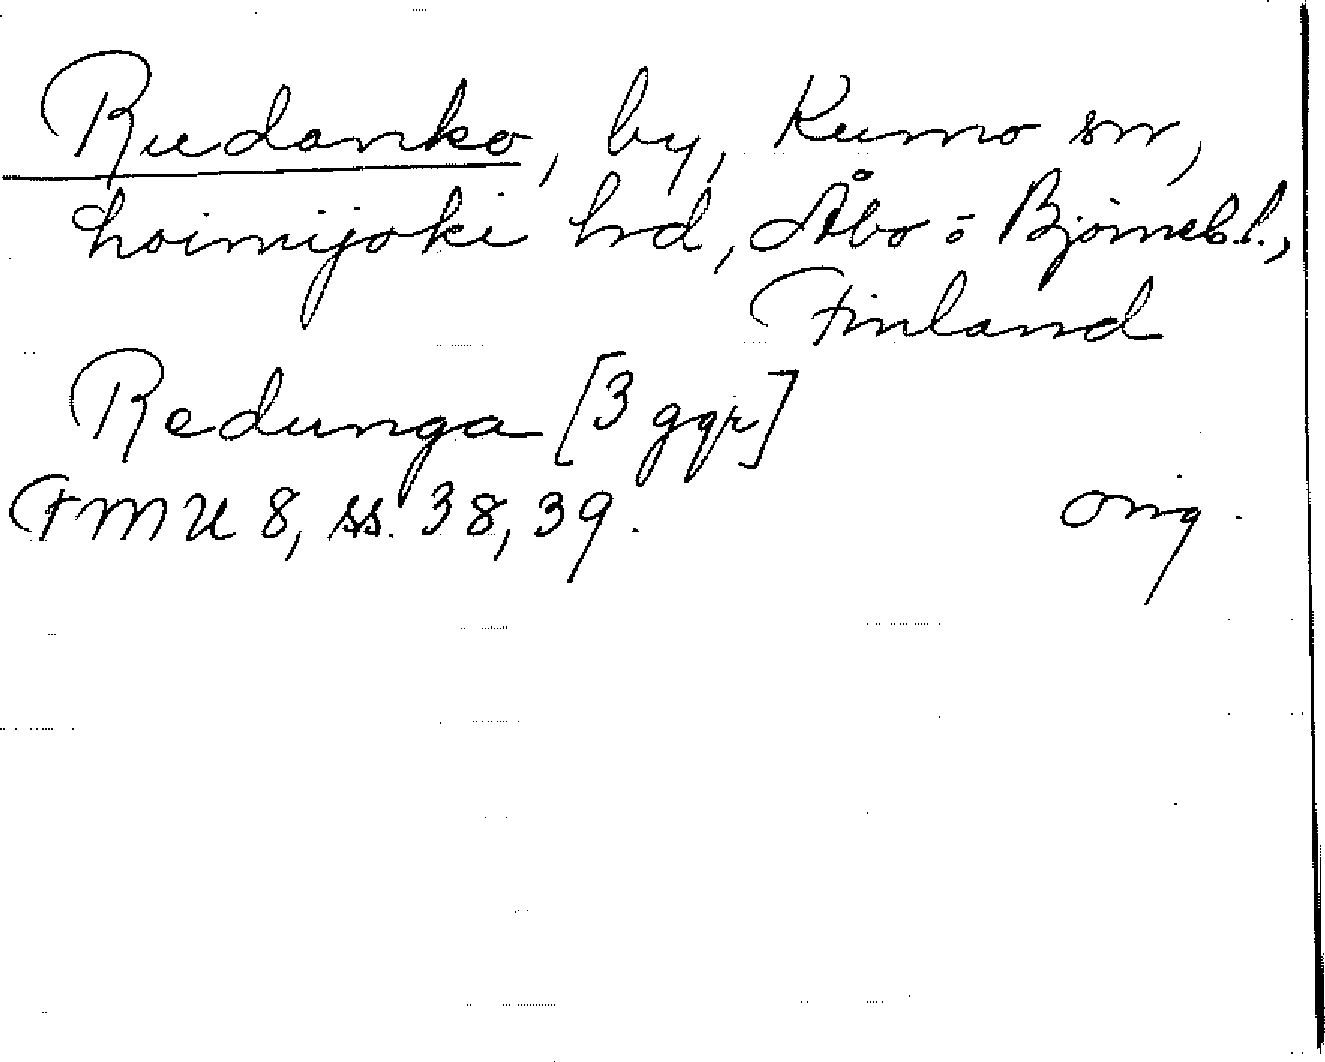 Rudanko, by, Kumo sn,
Loimijoki hd, Åbo o Björneb. l.,
Finland
Redunga [3 ggr]
FMU 8, ss. 38, 39.
orig.